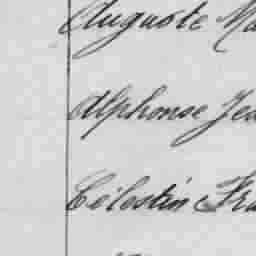 Auguste Ma
Alphonse Jea
Célestin Fra